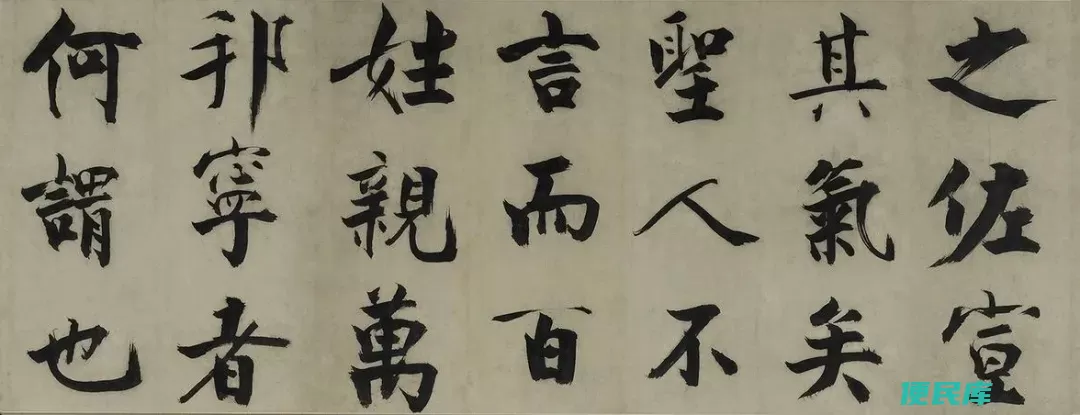 之佐宣
其氣矣
聖人不
言而百
姓親萬
邦寧者
何謂也
便民库